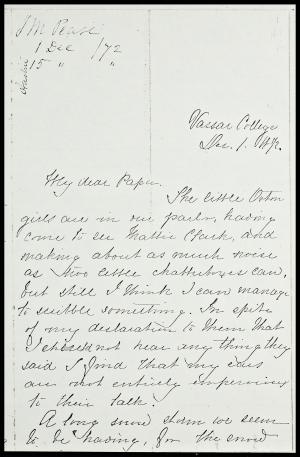 J M Pease
1 Dec /72
15 " "
Vassar College
Dec. 1. 1872.
My dear Papa.
The little Orton
girls are in our parlor, having
come to see Mattie Clark, and
making about as much noise
as two little chatterboxes can,
but still I think I can manage
to scribble something. In spite
of my declaration to them that
I should not hear any thing they
said I find that my ears
are not entirely impervious
to their talk.
A long snow storm we seem
to be having, for the snow